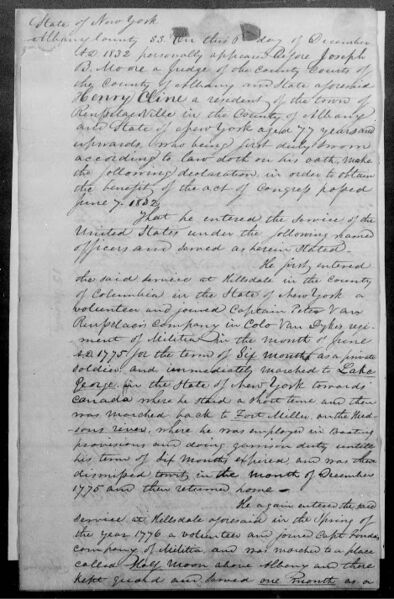 State of New York
Albany County SS. On this 6th day of December
A.D. 1832 personally appeared before Joseph
B. Moore a Judge of the County Courts of
the County of Albany and State aforesaid
Henry Cline a resident of the town of
Renselaerville in the County of Albany
and State of New York aged 77 years and
upwards, who being first duly sworn
according to law doth on his oath, make
the following declaration in order to obtain
the benefit of the act of Congress passed
June 7. 1832.
That he entered the Service of the
United States under the following named
officers and served as herein Stated
He first entered
the said service at Hillsdale in the County
of Columbia in the State of New York a
volunteer and joined Captain Peter Van
Renselaers Company in Colo Van Dykes regi
ment of Militia in the month of June
A.D. 1775 for the term of Six Months as a private
soldier and immediately marched to Lake
George, in the State of New York towards
Canada where he staid a short time and then
was marched back to Fort Miller, on the Hud
sons river, where he was employed in Boating
provisions and doing garrison duty untill
his term of Six Months expired and was then
dismissed in the month of December
1775 and then returned home —
He again entered the said
Service at Hillsdale aforesaid in the Spring of
the year 1776 a volunteer and joined Capt
company of Militia and was marched to a place
called Half Moon above Albany and there
kept guard and served one month as a